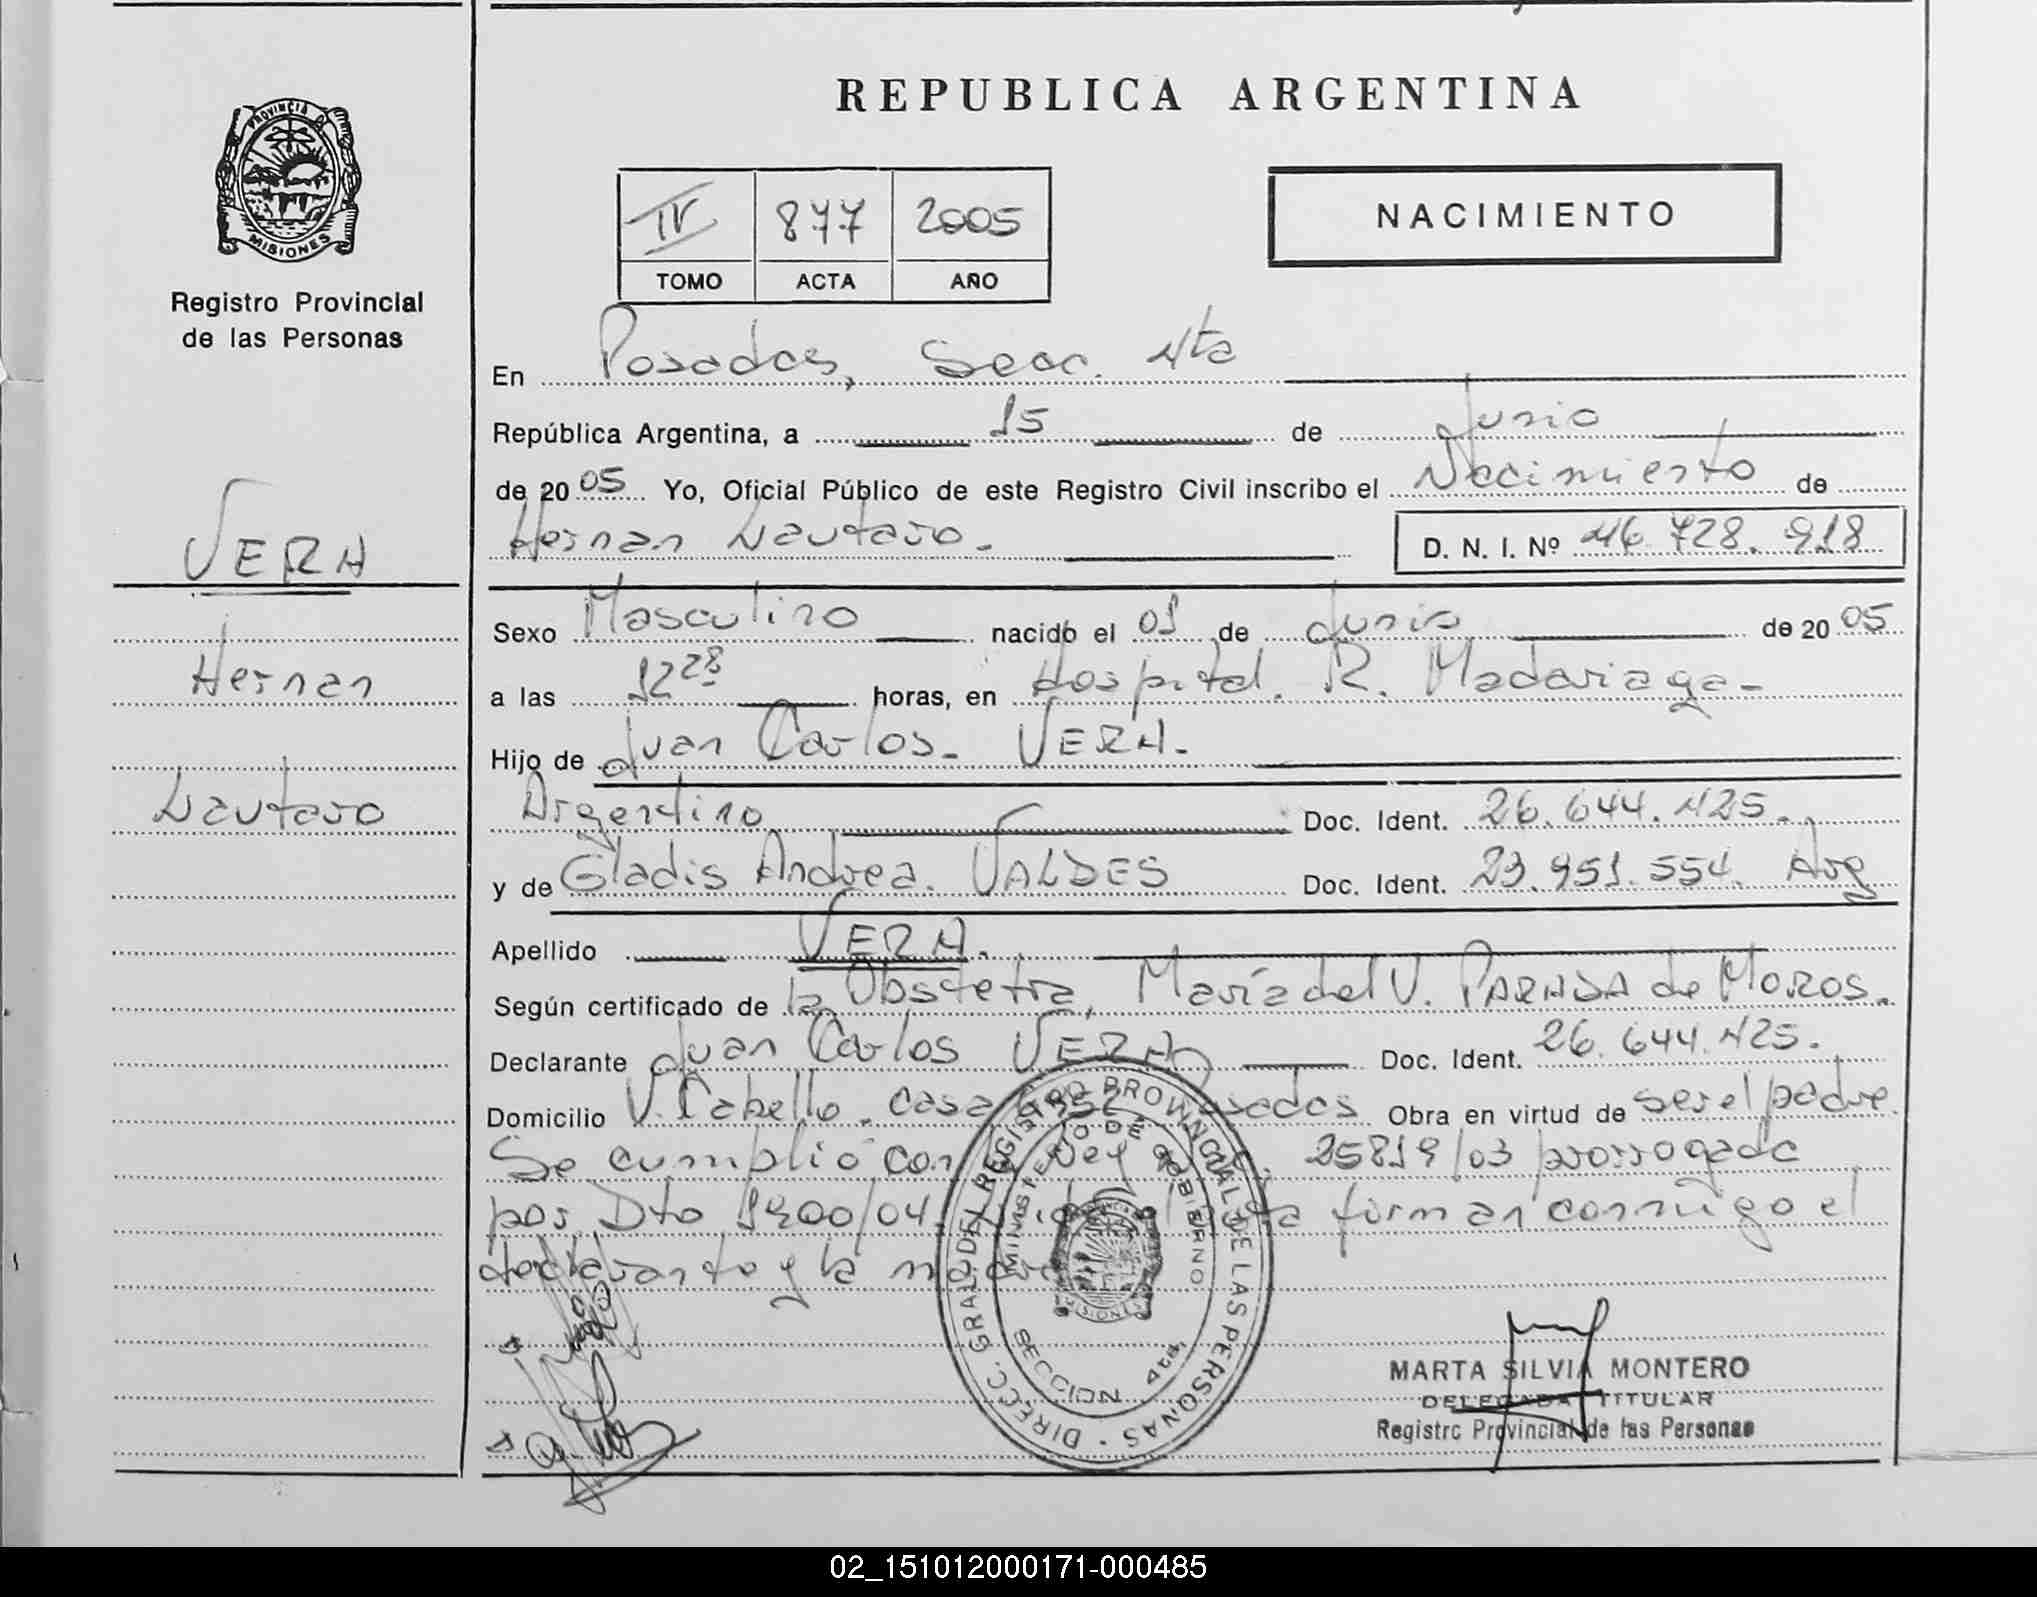 REPUBLICA ARGENTINA
PROVINCIA D
MISIONES
Registro Provincial
de las Personas
IV 877 2005
TOMO ACTA AÑO
NACIMIENTO
En Posadas, Secc. 4ta
República Argentina, a 15 de Junio
de 2005 Yo, Oficial Público de este Registro Civil inscribo el Nacimiento de
Hernan Lautaro. D. N. I. Nº 46.728.918
VERA
Hernan
Lautaro
Sexo Masculino nacido el 01 de Junio de 2005
a las 12 28 horas, en Hospital. R. Madariaga-
Hijo de Juan Carlos- VERA-
Argentino Doc. Ident. 26.644.425.
y de Gladis Andrea. VALDES Doc. Ident. 23.951.554. Arg
Apellido VERA.
Según certificado de la Obstetra, María del V. PARADA de MOROS.
Declarante Juan Carlos VERA Doc. Ident. 26.644.425.
Domicilio V. Cabello. casa Posadas Obra en virtud de ser el padre.
Se cumplió con Ley 25819/03 prorrogada
por Dto 1400/04. firman conmigo el
declarante y la madre
DIRECC. GRAL. DEL REGISTRO PROVINCIAL DE LAS PERSONAS
MINISTERIO DE GOBIERNO
MISIONES
SECCION 4ta.
MARTA SILVIA MONTERO
DELEGADA TITULAR
Registro Provincial de las Personas
02_151012000171-000485